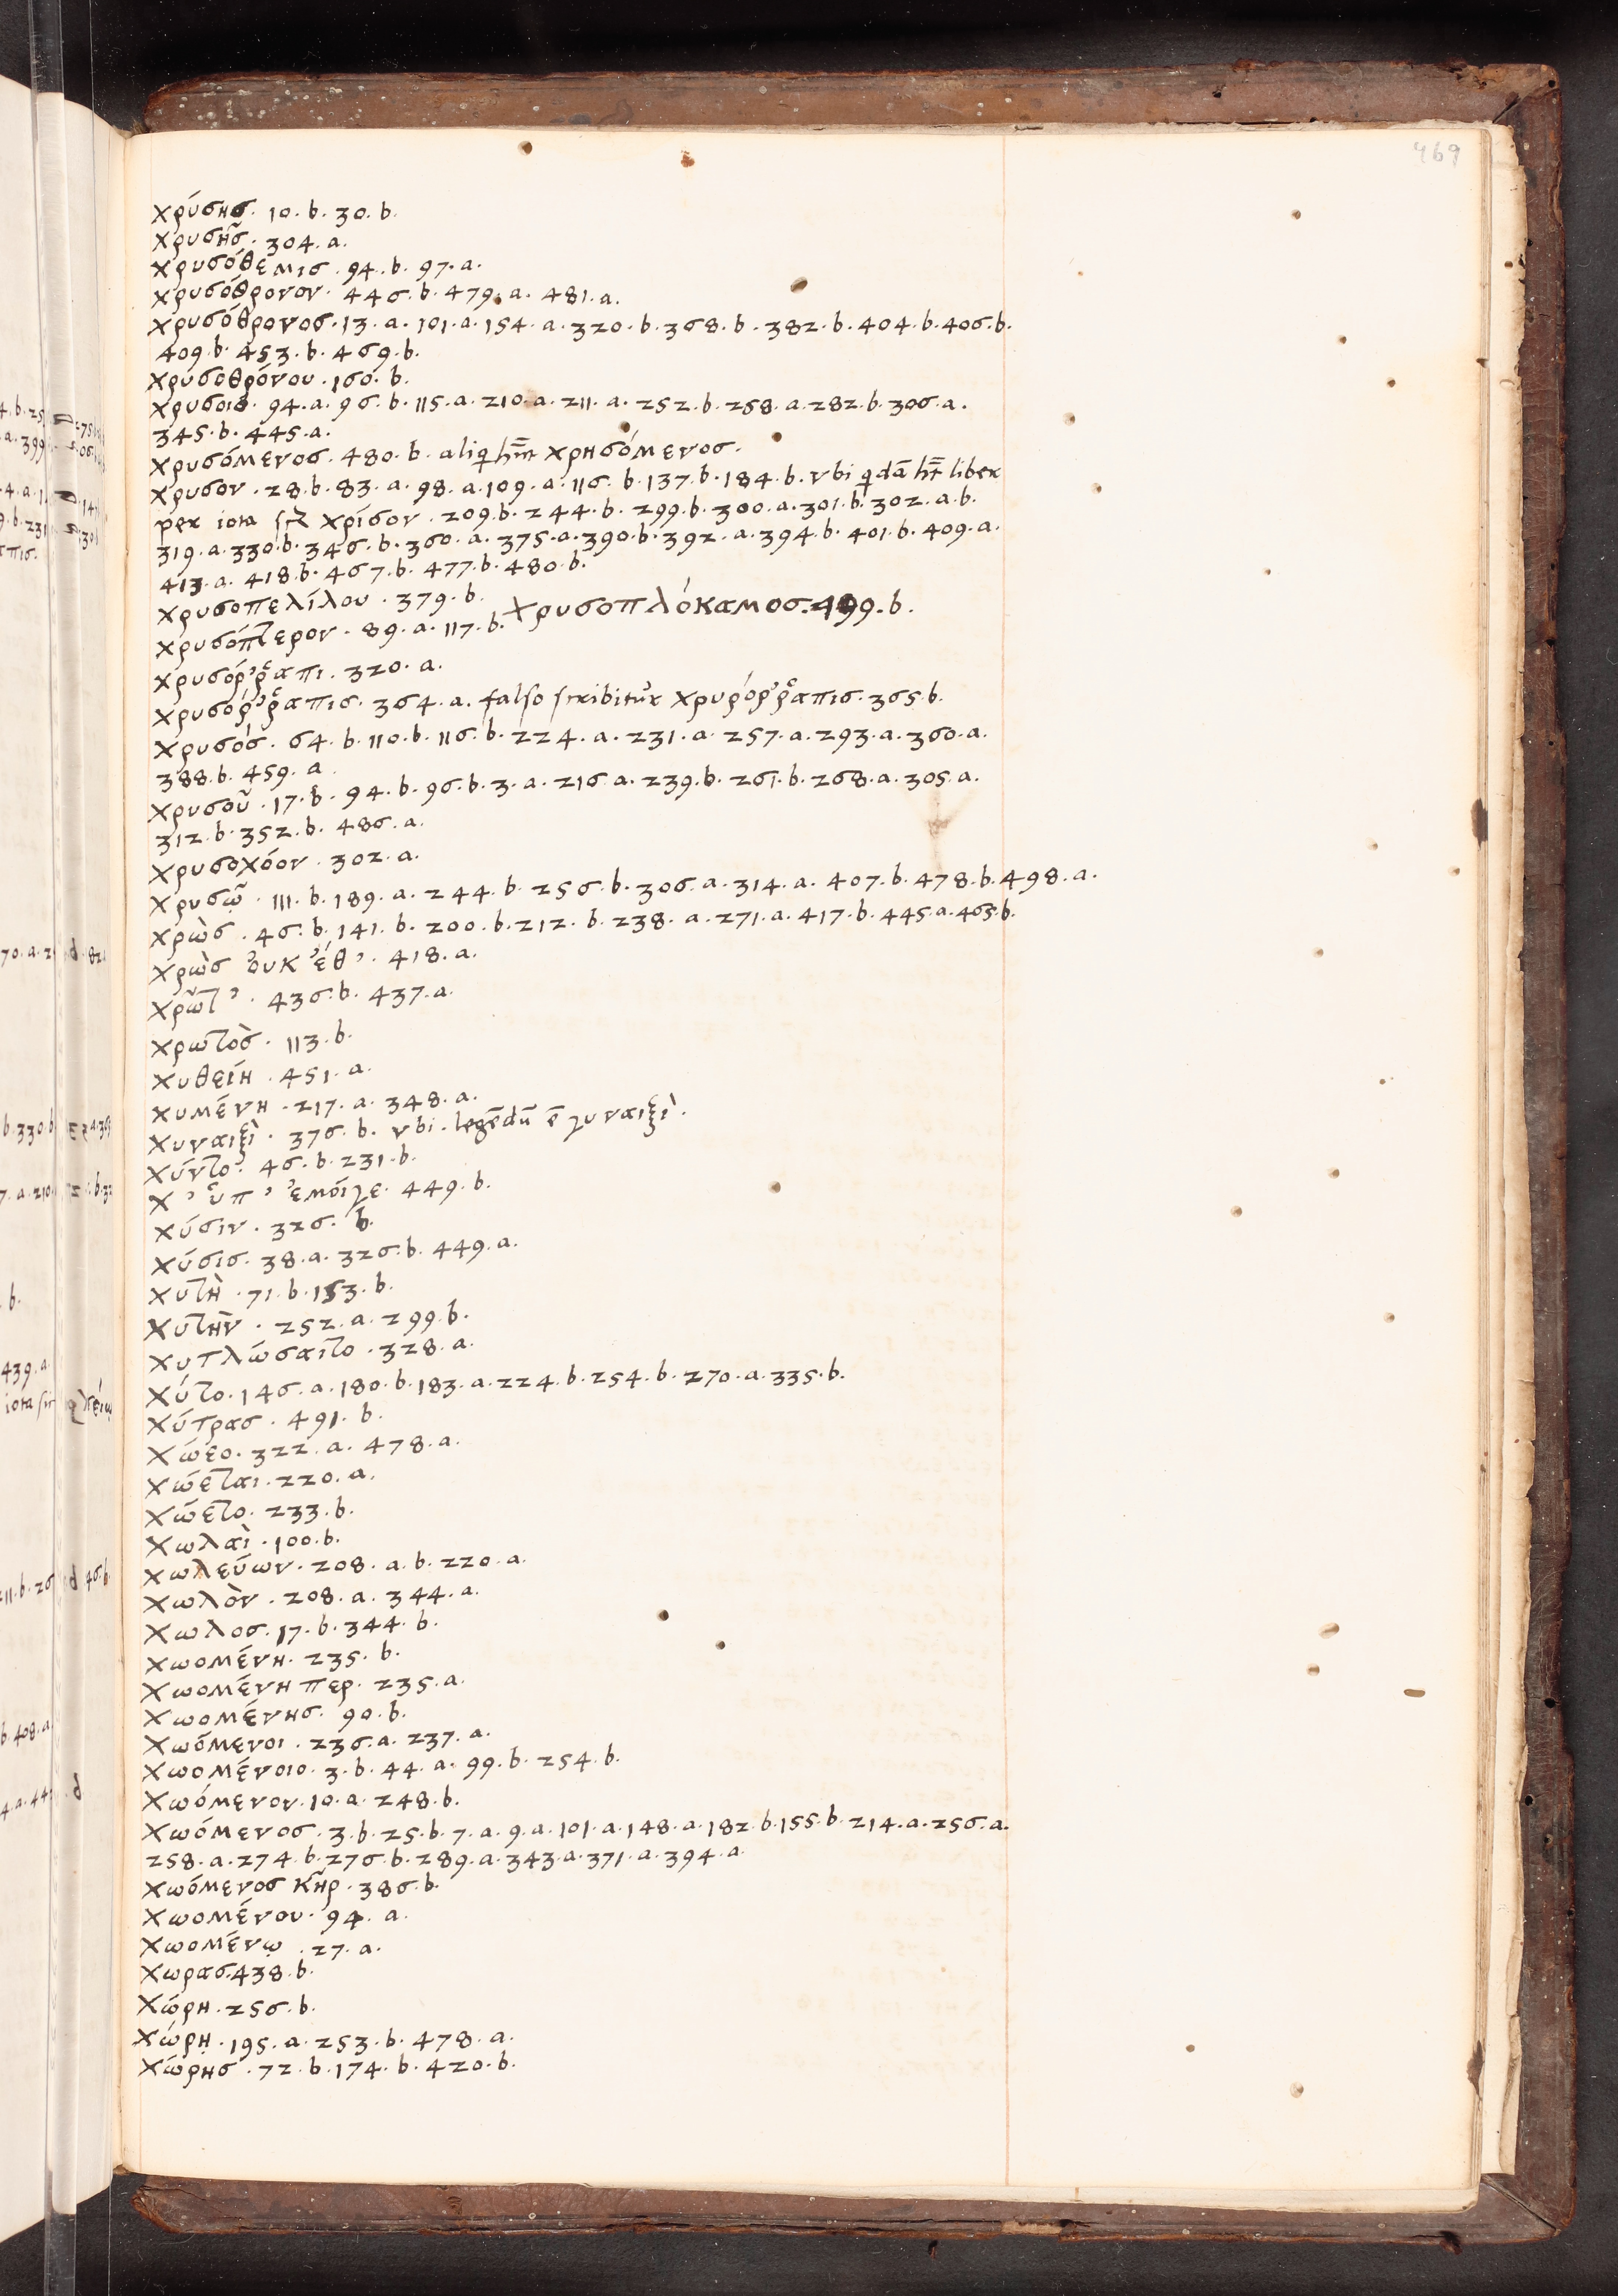 469
χρύσησ. 10. b. 30. b.
χρυσῆσ. 304. a.
χρυσόθεμισ. 94. b. 97. a.
χρυσόθρονον. 446. b. 479. a. 481. a.
χρυσόθρονοσ. 13. a. 101. a. 154. a. 320. b. 368. b. 382. b. 404. b. 406. b.
409. b. 453. b. 469. b.
χρυσοθρόνου. 160. b.
χρυσοιο. 94. a. 96. b. 115. a. 210. a. 211. a. 252. b. 258. a. 282. b. 306. a.
345. b. 445. a.
χρυσόμενοσ. 480. b. χρησόμενοσ.
χρυσον. 28. b. 83. a. 98. a. 109. a. 116. b. 137. b. 184. b. vbi q̇dā hr̄t liber
per iota χρίσον. 209. b. 244. b. 299. b. 300. a. 301. b. 302. a. b.
319. a. 330. b. 346. b. 360. a. 375. a. 390. b. 392. a. 394. b. 401. b. 409. a.
413. a. 418. b. 467. b. 477. b. 480. b.
χρυσοπελίλου. 379. b.
χρυσόπτερον. 89. a. 117. b. χρυσοπλόκαμοσ. 499. b.
χρυσόῤῥαπι. 320. a.
χρυσόῤῥαπισ. 364. a. falso scribitur χρυρόῤῥαπισ. 365. b.
χρυσόσ. 64. b. 110. b. 116. b. 224. a. 231. a. 257. a. 293. a. 360. a.
388. b. 459. a
χρυσοῦ. 17. b. 94. b. 96. b. 3. a. 216. a. 239. b. 261. b. 268. a. 305. a.
312. b. 352. b. 486. a.
χρυσοχόον. 302. a.
χρυσῷ. 111. b. 189. a. 244. b. 256. b. 306. a. 314. a. 407. b. 478. b. 498. a.
χρὼσ. 46. b. 141. b. 200. b. 212. b. 238. a. 271. a. 417. b. 445. a. 465. b.
χρὼσ ὀυκ ἔθ᾽. 418. a.
χρῶτ᾽. 436. b. 437. a.
χρωτὸσ. 113. b.
χυθείη. 451. a.
χυμένη. 217. a. 348. a.
χυναιξὶ. 376. b. vbi. legēdū ē γυναιξὶ.
χύντο. 46. b. 231. b.
χ᾽ ὑπ᾽ ἐμόιγε. 449. b.
χύσιν. 326. b.
χύσισ. 38. a. 326. b. 449. a.
χυτὴ. 71. b. 153. b.
χυτὴν. 252. a. 299. b.
χυτλώσαιτο. 328. a.
χύτο. 146. a. 180. b. 183. a. 224. b. 254. b. 270. a. 335. b.
χύτρασ. 491. b.
χώεο. 322. a. 478. a.
χώεται. 220. a.
χώετο. 233. b.
χωλαὶ. 100. b.
χωλεύων. 208. a. b. 220. a.
χωλὸν. 208. a. 344. a.
χωλοσ. 17. b. 344. b.
χωομένη. 235. b.
χωομένη περ. 235. a.
χωομένησ. 90. b.
χωόμενοι. 236. a. 237. a.
χωομένοιο. 3. b. 44. a. 99. b. 254. b.
χωόμενον. 10. a. 248. b.
χωόμενοσ. 3. b. 25. b. 7. a. 9. a. 101. a. 148. a. 182. b. 155. b. 214. a. 256. a.
258. a. 274. b. 276. b. 289. a. 343. a. 371. a. 394. a.
χωόμενοσ κῆρ. 386. b.
χωομένου. 94. a.
χωομένῳ. 27. a.
χωρασ. 438. b.
χώρη. 256. b.
χώρῃ. 195. a. 253. b. 478. a.
χώρησ. 72. b. 174. b. 420. b.